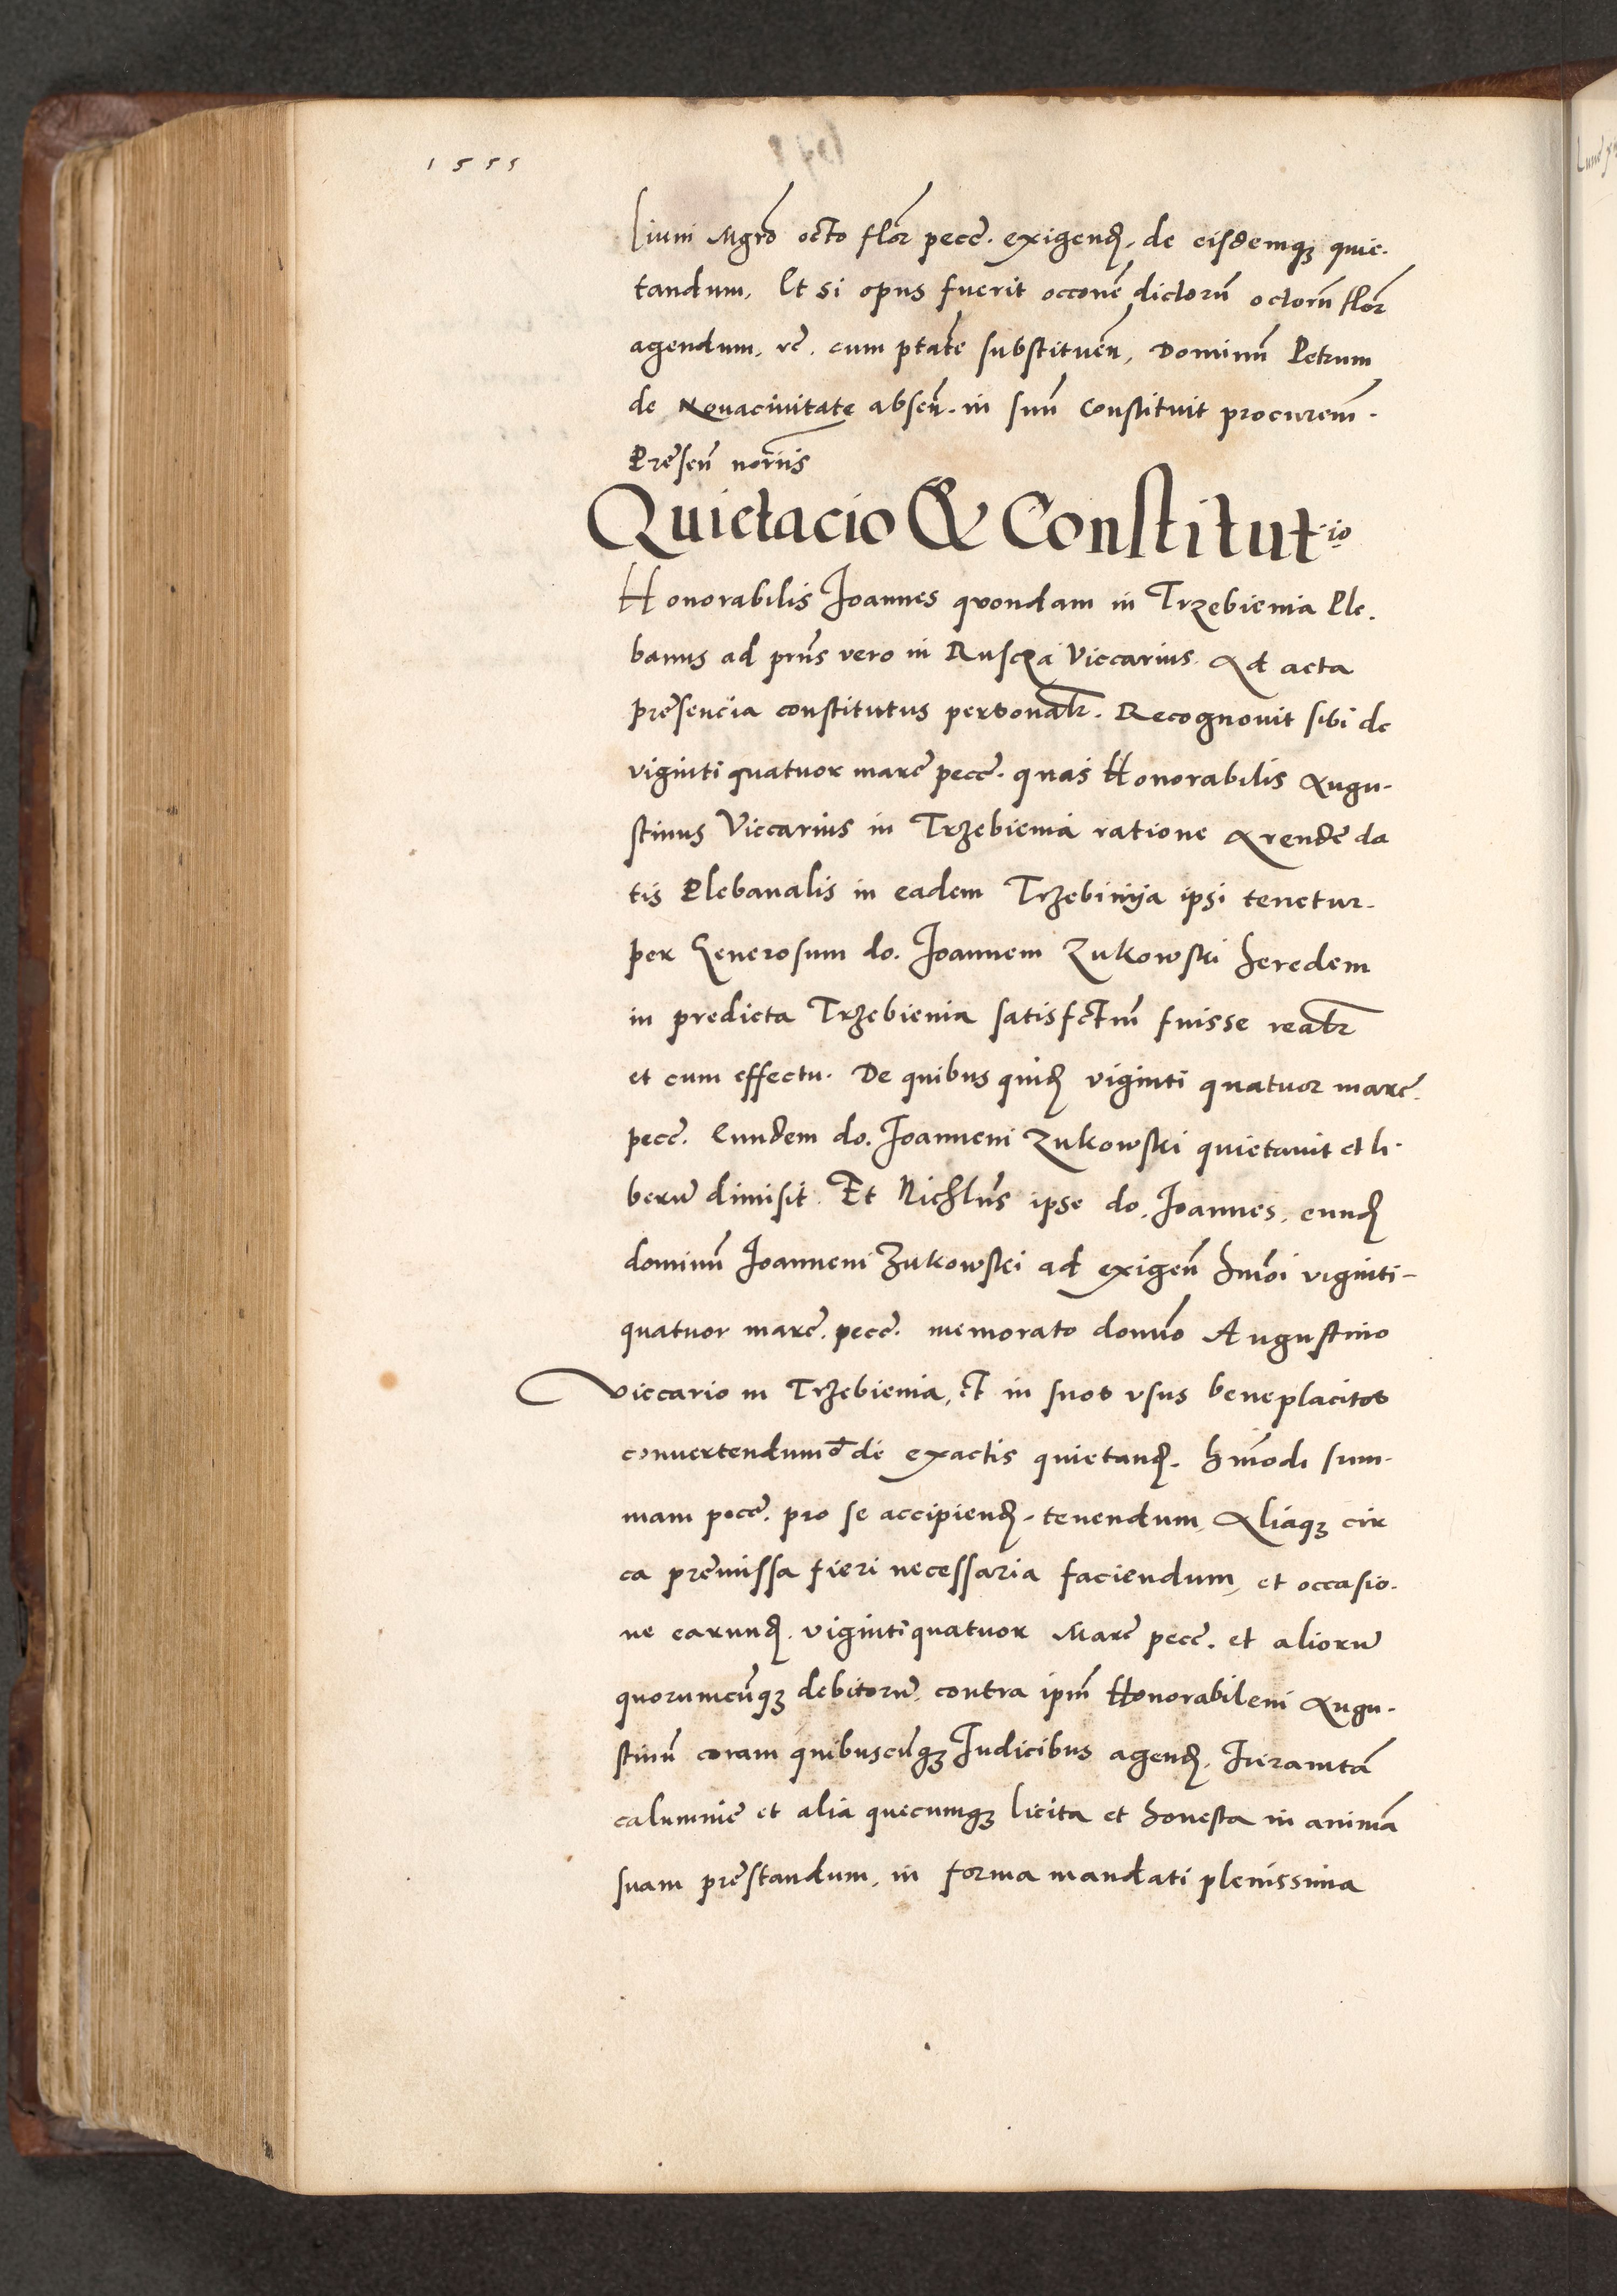 1555
liuni Mgrō octo flor̄ pecc̄. exigend̄. de eisdemq3 quie.
tandum, Et si opus fuerit occonē dictorū octorū flor̄
agendum, rc̄. cum ptatē substituen̄, Dominū Petrum
de Nouaciuitate absen̄. in suū Constituit procurem̄.
Prēsen̄ noriis
Quietacio & Constitut.io
Honorabilis Joannes quondam in Trzebienia Ple.
banus ad prn̄s vero in Rusczа Viccarius. Ad acta
prēsencia constitutus personalr̄. Recognouit sibi de
viginti quatuor marc̄ pecc̄. quas Honorabilis Augu.
stinus Viccarius in Trzebienia ratione Arendē da
tis Plebanalis in eadem Trzebinija ipsi tenetur.
per Generosum do. Joannem Zukowski heredem
in predicta Trzebienia satisfctm̄ fuisse realr̄
et cum effectu. De quibus quid̄ viginti quatuor marc̄.
pecc̄. Eundem do. Joannem Zukowski quietauit et li.
berū dimisit. Et Nichlūs ipse do. Joannes, eund̄
dominū Joannem Zukowski ad exigen̄ hmōi viginti-
quatuor marc̄. pecc̄. memorato domīo Augustino
viccario in Trzebienia, et in suos vsus beneplacitos
conuertendum de exactis quietand̄. hmōdi sum.
mam pecc̄. pro se accipiend̄. tenendum, Aliaq3 cir
ca prēmissa fieri necessaria faciendum, et occasio.
ne earund̄. viginti quatuor Marc̄ pecc̄. et aliorū
quorumcūq3 debitorū, contra ipm̄ Honorabilem Augu.
stinū coram quibuscūq3 Judicibus agend̄. Juramtā
calumnie et alia quecumq3 licita et honesta in animā
suam prēstandum, in forma mandati plenissima